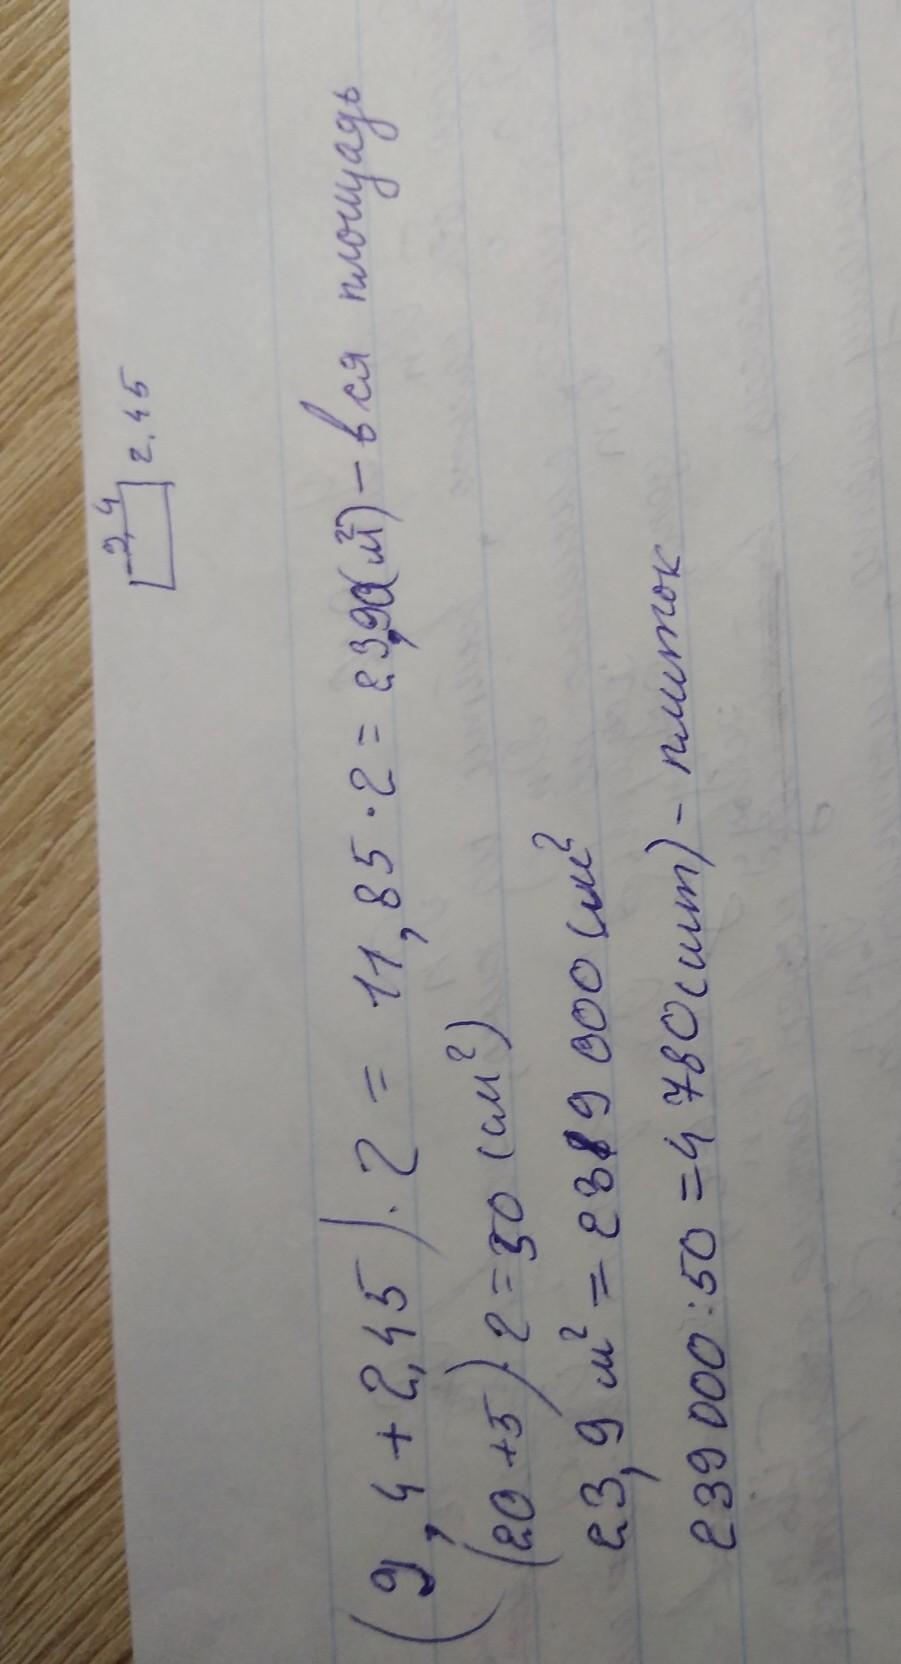 9,4
2,45
(9,4+2,45)·2=11,85·2=23,90(м²)-вся площадь
(20+5)·2=50(см²)
23,9 м²=239 000 см²
239 000:50=4780(шт)-плиток